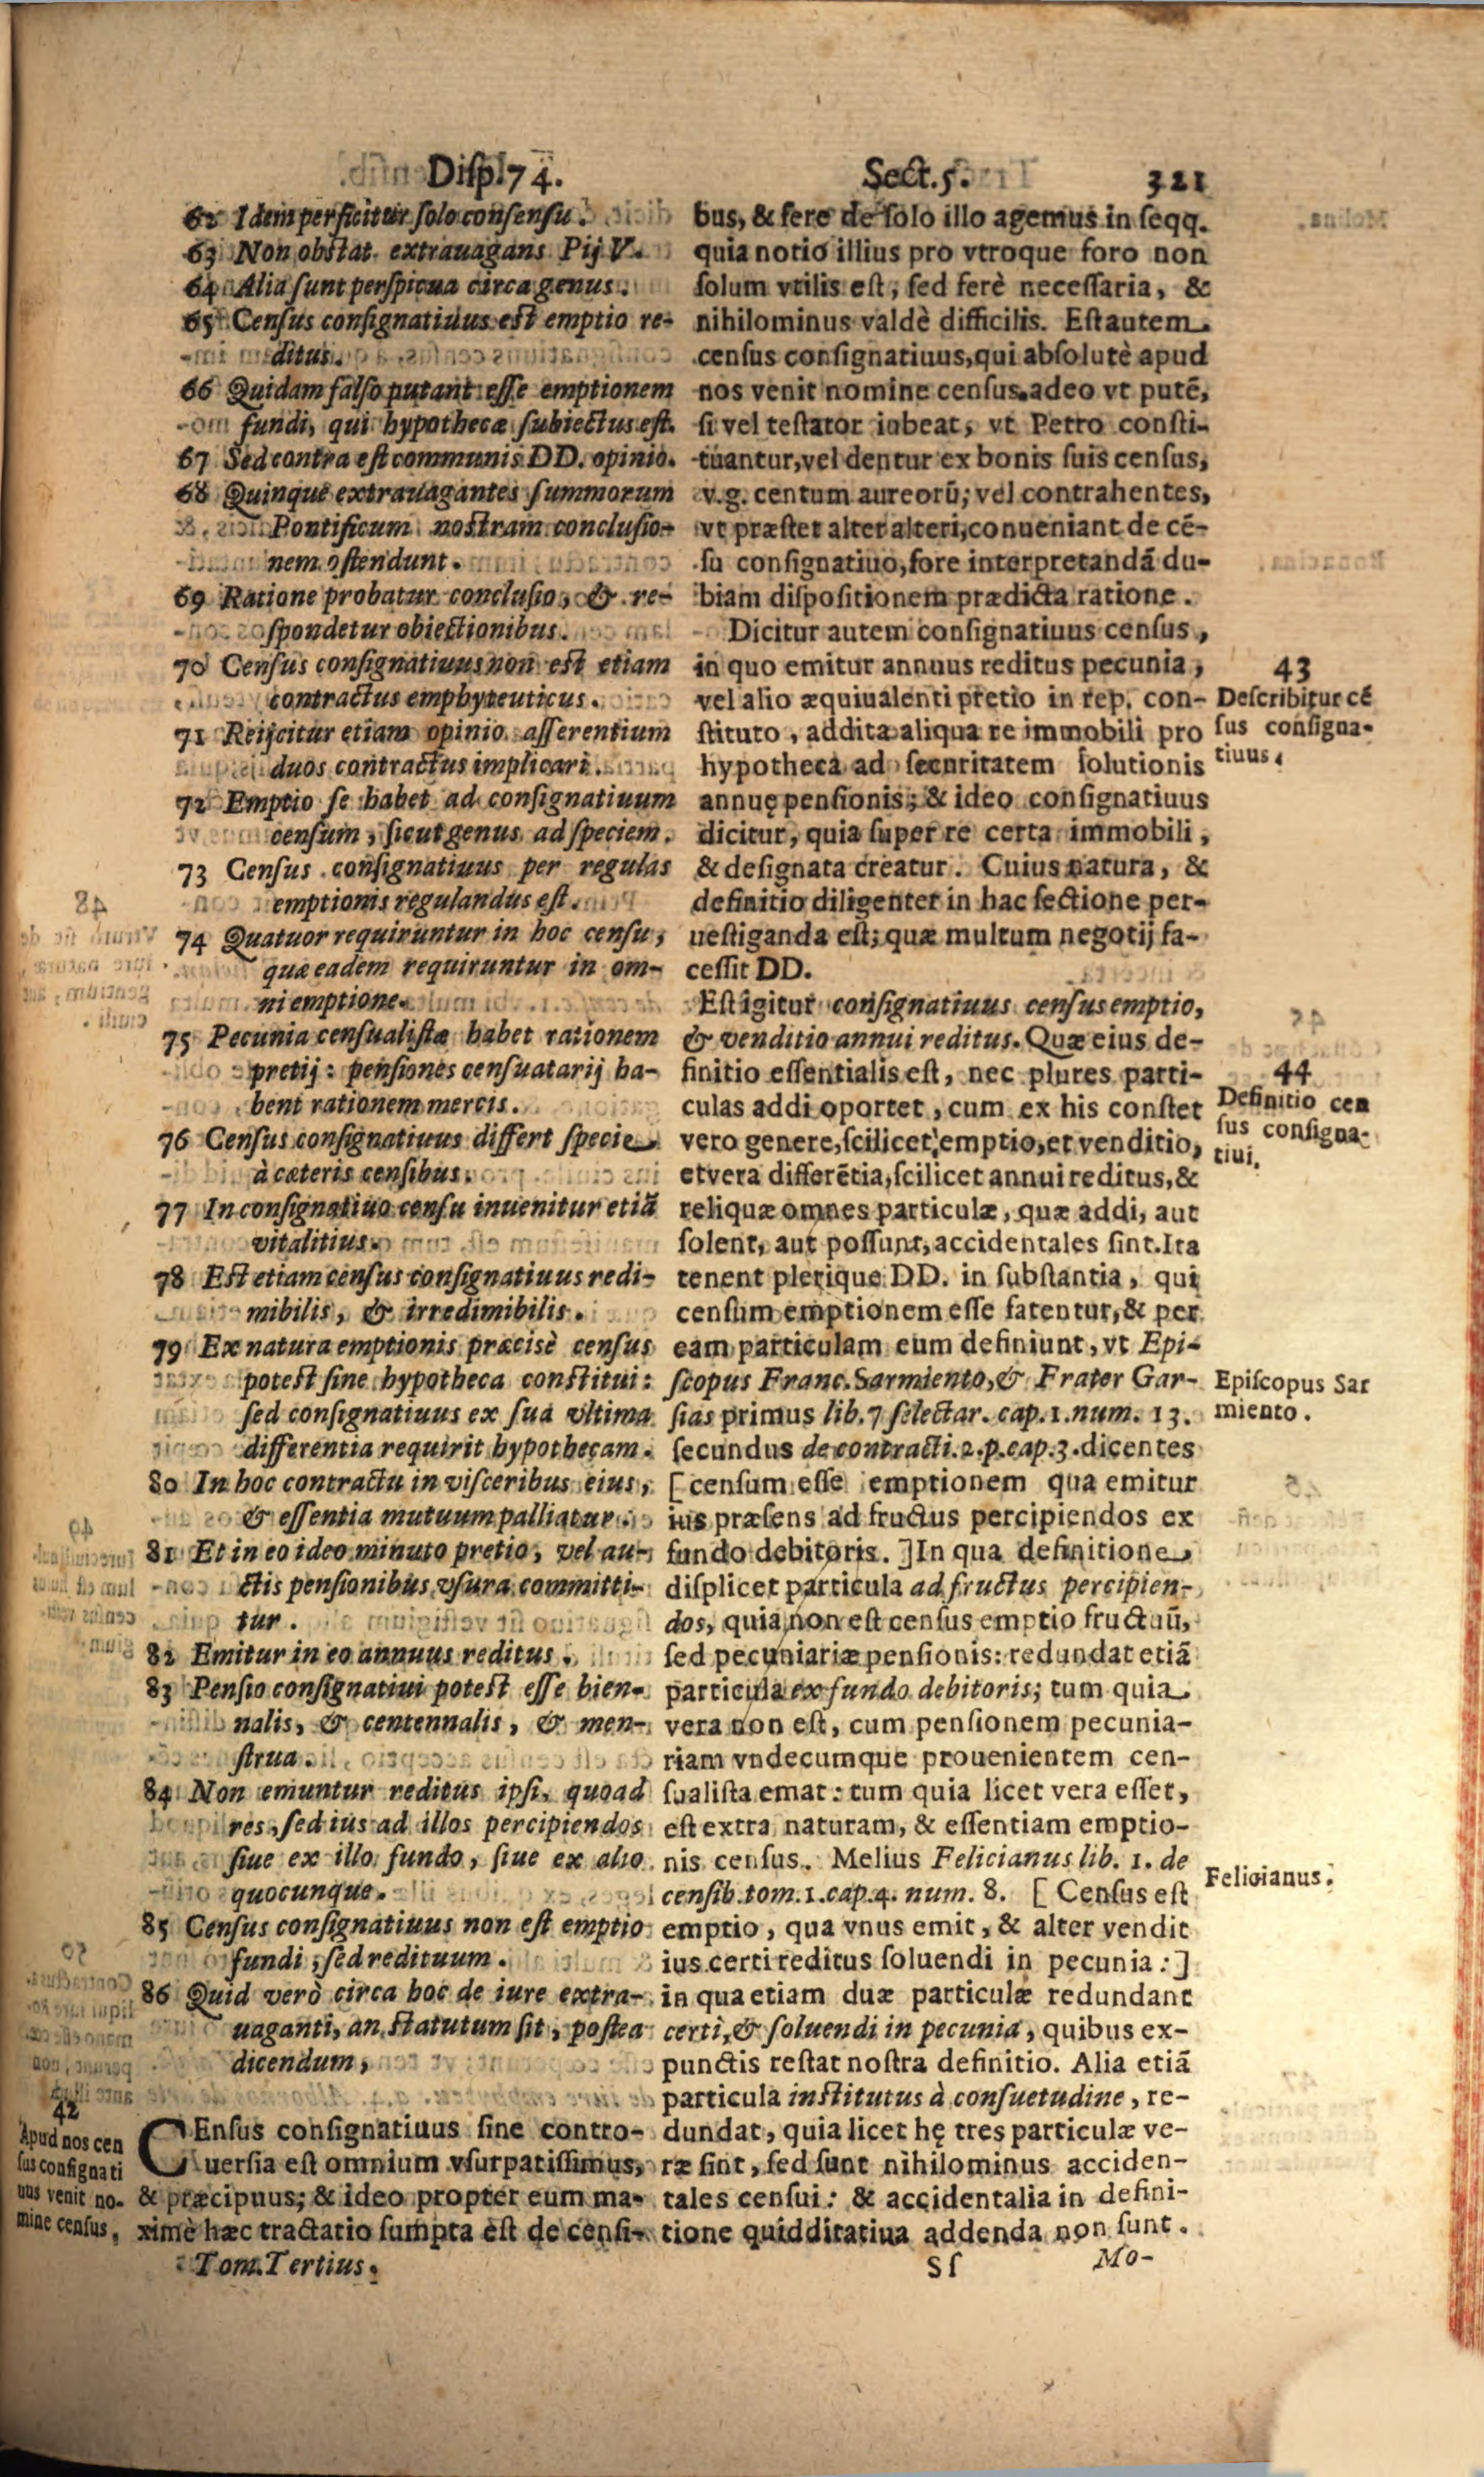 Disp. 74.
Sect. 5.
321
62 Idem perficitur solo consensu.
63 Non obstat extrauagans Pij V.
64 Alia sunt perspicua circa genus.
65 Census consignatiuus est emptio re-
ditus.
66 Quidam falso putant esse emptionem
fundi, qui hypothecæ subiectus est.
67 Sed contra est communis DD. opinio.
68 Quinque extrauagantes summorum
Pontificum nostram conclusio-
nem ostendunt.
69 Ratione probatur conclusio, & re-
spondetur obiectionibus.
70 Census consignatiuus non est etiam
contractus emphyteuticus.
71 Reijcitur etiam opinio asserentium
duos contractus implicari.
72 Emptio se habet ad consignatiuum
censum, sicut genus ad speciem.
73 Census consignatiuus per regulas
emptionis regulandus est.
74 Quatuor requiruntur in hoc censu,
quæ eadem requiruntur in om-
ni emptione.
75 Pecunia censualistæ habet rationem
pretij: pensiones censuatarij ha-
bent rationem mercis.
76 Census consignatiuus differt specie
à cæteris censibus.
77 In consignatiuo censu inuenitur etiã
vitalitius.
78 Est etiam census consignatiuus redi-
mibilis, & irredimibilis.
79 Ex natura emptionis præcisè census
potest sine hypotheca constitui:
sed consignatiuus ex sua vltima
differentia requirit hypothecam.
80 In hoc contractu in visceribus eius,
& essentia mutuum palliatur.
81 Et in eo ideo minuto pretio, vel au-
ctis pensionibus vsura committi-
tur.
82 Emitur in eo annuus reditus.
83 Pensio consignatiui potest esse bien-
nalis, & centennalis, & men-
strua.
84 Non emuntur reditus ipsi, quoad
res, sed ius ad illos percipiendos
siue ex illo fundo, siue ex alio
quocunque.
85 Census consignatiuus non est emptio
fundi, sed redituum.
86 Quid verò circa hoc de iure extra-
uaganti, an statutum sit, postea
dicendum,
42
Apud nos cen
sus consignati
uus venit no-
mine census.
CEnsus consignatiuus sine contro-
uersia est omnium vsurpatissimus,
& præcipuus; & ideo propter eum ma-
ximè hæc tractatio sumpta est de censi-
Tom. Tertius.
bus, & fere de solo illo agemus in seqq.
quia notio illius pro vtroque foro non
solum vtilis est, sed ferè necessaria, &
nihilominus valdè difficilis. Est autem
census consignatiuus, qui absolutè apud
nos venit nomine census. adeo vt putẽ,
si vel testator iubeat, vt Petro consti-
tuantur, vel dentur ex bonis suis census,
v.g. centum aureorũ; vel contrahentes,
vt præstet alter alteri, conueniant de cẽ-
su consignatiuo, fore interpretandã du-
biam dispositionem prædicta ratione.
Dicitur autem consignatiuus census,
in quo emitur annuus reditus pecunia,
vel alio æquiualenti pretio in rep. con-
stituto, addita aliqua re immobili pro
hypotheca ad securitatem solutionis
annuę pensionis; & ideo consignatiuus
dicitur, quia super re certa immobili,
& designata creatur. Cuius natura, &
definitio diligenter in hac sectione per-
uestiganda est; quæ multum negotij fa-
cessit DD.
Est igitur consignatiuus census emptio,
& venditio annui reditus. Quæ eius de-
finitio essentialis est, nec plures parti-
culas addi oportet, cum ex his constet
vero genere, scilicet, emptio, et venditio,
et vera differẽtia, scilicet annui reditus, &
reliquæ omnes particulæ, quæ addi, aut
solent, aut possunt, accidentales sint. Ita
tenent plerique DD. in substantia, qui
censum emptionem esse fatentur, & per
eam particulam eum definiunt, vt Epi-
scopus Franc. Sarmiento, & Frater Gar-
sias primus lib. 7 selectar. cap. 1. num. 13.
secundus de contracti. 2. p. cap. 3. dicentes
[censum esse emptionem qua emitur
ius præsens ad fructus percipiendos ex
fundo debitoris.] In qua definitione
displicet particula ad fructus percipien-
dos, quia non est census emptio fructuũ,
sed pecuniariæ pensionis: redundat etiã
particula ex fundo debitoris; tum quia
vera non est, cum pensionem pecunia-
riam vndecumque prouenientem cen-
sualista emat: tum quia licet vera esset,
est extra naturam, & essentiam emptio-
nis census. Melius Felicianus lib. 1. de
censib. tom. 1. cap. 4. num. 8. [Census est
emptio, qua vnus emit, & alter vendit
ius certi reditus soluendi in pecunia:]
in qua etiam duæ particulæ redundant
certi, & soluendi in pecunia, quibus ex-
punctis restat nostra definitio. Alia etiã
particula institutus à consuetudine, re-
dundat, quia licet hę tres particulæ ve-
ræ sint, sed sunt nihilominus acciden-
tales censui: & accidentalia in defini-
tione quidditatiua addenda non sunt.
Ss
Mo-
43
Describitur cẽ
sus consigna-
tiuus.
44
Definitio cen
sus consigna-
tiui.
Episcopus Sar
miento.
Felicianus.